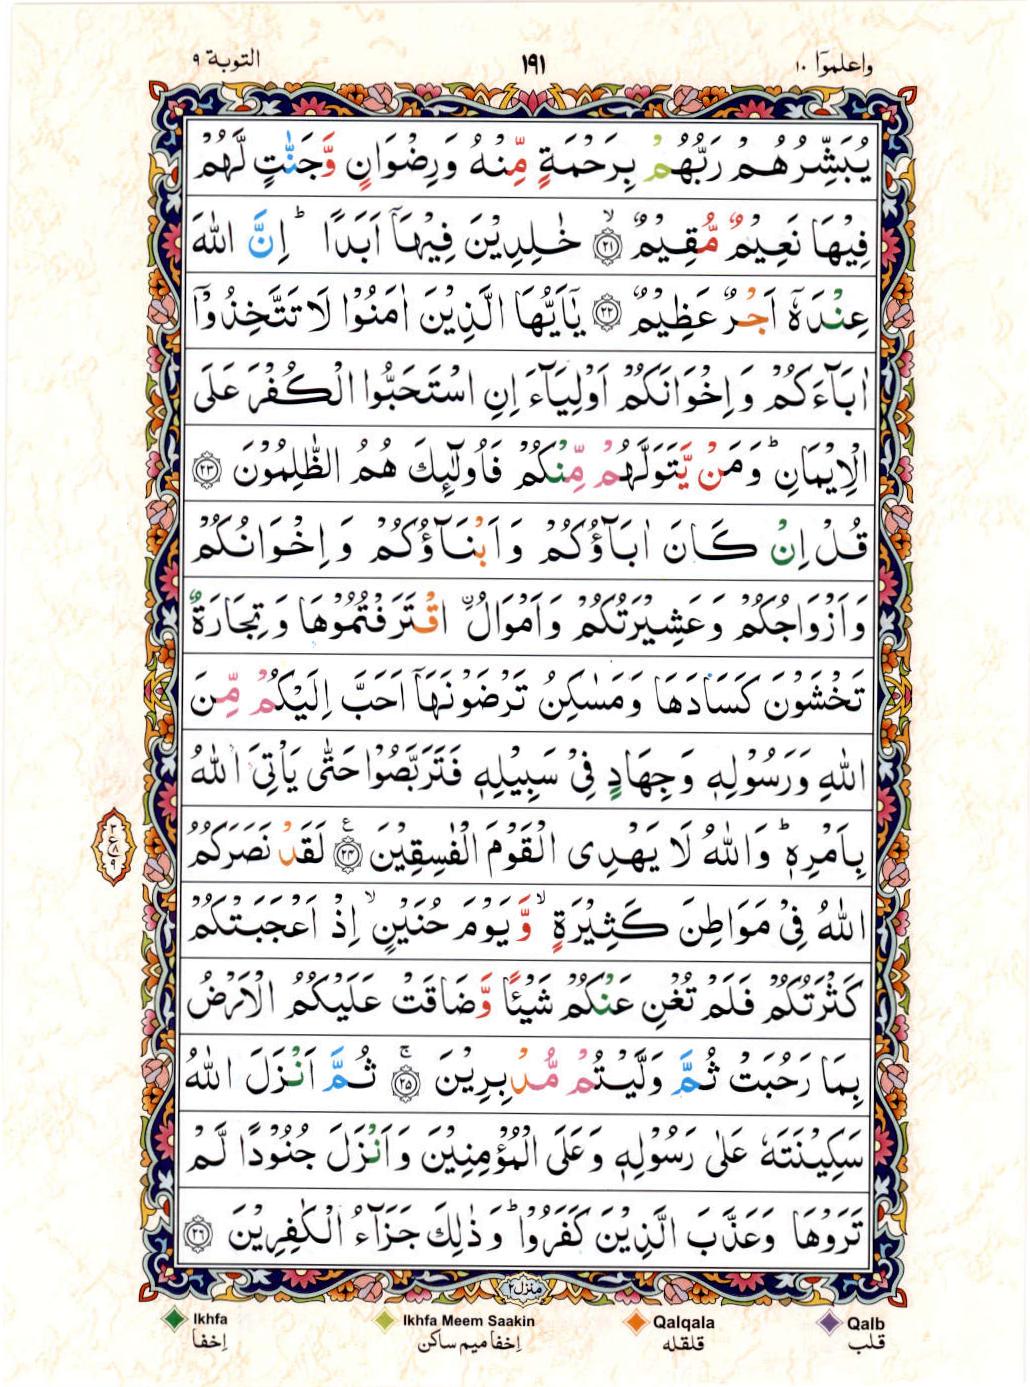 واعلموٓا ١٠
١٩١
التوبة ٩
يُبَشِّرُهُمْ رَبُّهُمْ بِرَحْمَةٍ مِّنْهُ وَرِضْوَانٍ وَّجَنّٰتٍ لَّهُمْ
فِيْهَا نَعِيْمٌ مُّقِيْمٌ ۙ﴿٢١﴾ خٰلِدِيْنَ فِيْهَاۤ اَبَدًا ؕ اِنَّ اللّٰهَ
عِنْدَهٗۤ اَجْرٌ عَظِيْمٌ ﴿٢٢﴾ يٰۤاَيُّهَا الَّذِيْنَ اٰمَنُوْا لَا تَتَّخِذُوْۤا
اٰبَآءَكُمْ وَاِخْوَانَكُمْ اَوْلِيَآءَ اِنِ اسْتَحَبُّوا الْكُفْرَ عَلَى
الْاِيْمَانِ ؕ وَمَنْ يَّتَوَلَّهُمْ مِّنْكُمْ فَاُولٰٓئِكَ هُمُ الظّٰلِمُوْنَ ﴿٢٣﴾
قُلْ اِنْ كَانَ اٰبَآؤُكُمْ وَاَبْنَآؤُكُمْ وَاِخْوَانُكُمْ
وَاَزْوَاجُكُمْ وَعَشِيْرَتُكُمْ وَاَمْوَالُ ۨاقْتَرَفْتُمُوْهَا وَتِجَارَةٌ
تَخْشَوْنَ كَسَادَهَا وَمَسٰكِنُ تَرْضَوْنَهَاۤ اَحَبَّ اِلَيْكُمْ مِّنَ
اللّٰهِ وَرَسُوْلِهٖ وَجِهَادٍ فِيْ سَبِيْلِهٖ فَتَرَبَّصُوْا حَتّٰى يَاْتِيَ اللّٰهُ
بِاَمْرِهٖ ؕ وَاللّٰهُ لَا يَهْدِى الْقَوْمَ الْفٰسِقِيْنَ ﴿٢٤﴾ع لَقَدْ نَصَرَكُمُ
اللّٰهُ فِيْ مَوَاطِنَ كَثِيْرَةٍ ۙ وَّيَوْمَ حُنَيْنٍ ۙ اِذْ اَعْجَبَتْكُمْ
كَثْرَتُكُمْ فَلَمْ تُغْنِ عَنْكُمْ شَيْئًا وَّضَاقَتْ عَلَيْكُمُ الْاَرْضُ
بِمَا رَحُبَتْ ثُمَّ وَلَّيْتُمْ مُّدْبِرِيْنَ ۚ﴿٢٥﴾ ثُمَّ اَنْزَلَ اللّٰهُ
سَكِيْنَتَهٗ عَلٰى رَسُوْلِهٖ وَعَلَى الْمُؤْمِنِيْنَ وَاَنْزَلَ جُنُوْدًا لَّمْ
تَرَوْهَا وَعَذَّبَ الَّذِيْنَ كَفَرُوْا ؕ وَذٰلِكَ جَزَآءُ الْكٰفِرِيْنَ ﴿٢٦﴾
منزل ٢
Ikhfa
اخفا
Ikhfa Meem Saakin
اخفا میم ساکن
Qalqala
قلقله
Qalb
قلب